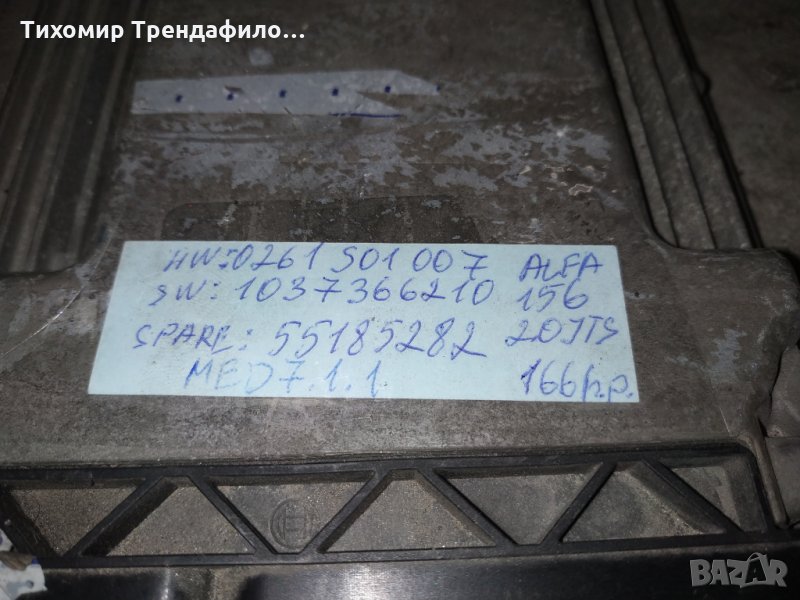 Тихомир Трендафило...
HW:0261 S01 007 ALFA
SW: 1037366210 156
SPARE: 55185282 2.0JTS
MED7.1.1 166h.p.
BAZAR